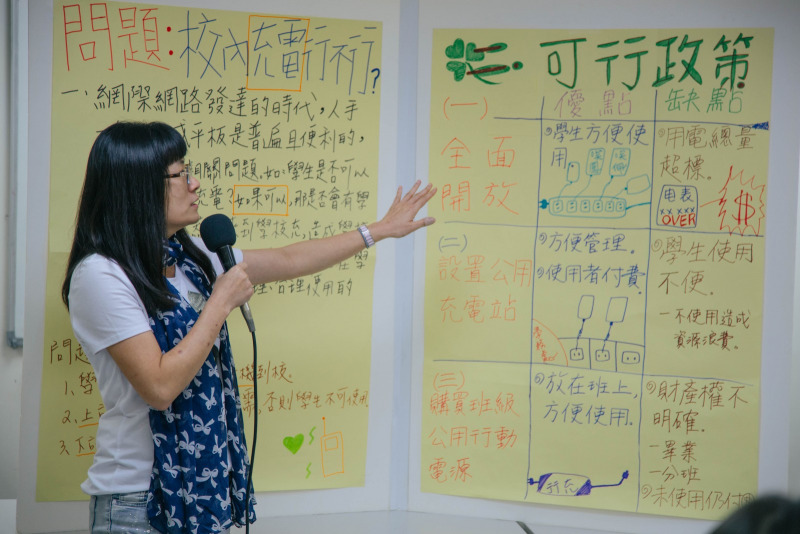 問題:校內充電行不行?
一、網際網路發達的時代,人手
平板是普遍且便利的,
相關問題.如:學生是否可以
充電?如果可以,那是否會有學
到學校充,造成學
理、合理使用的
問
1.學
機到校.
2.上
否則學生不可使用
3.下
可行政策
優點
缺點
(一)
全面
開放
學生方便使
用
用電總量
超標.
电表
XX XXX
OVER
$
(二)
設置公用
充電站
方便管理.
使用者付費.
學生使用
不便.
一不使用造成
資源浪費.
(三)
購買班級
公用行動
電源
放在班上,
方便使用.
行充
財產權不
明確.
一畢業
一分班
未使用仍付